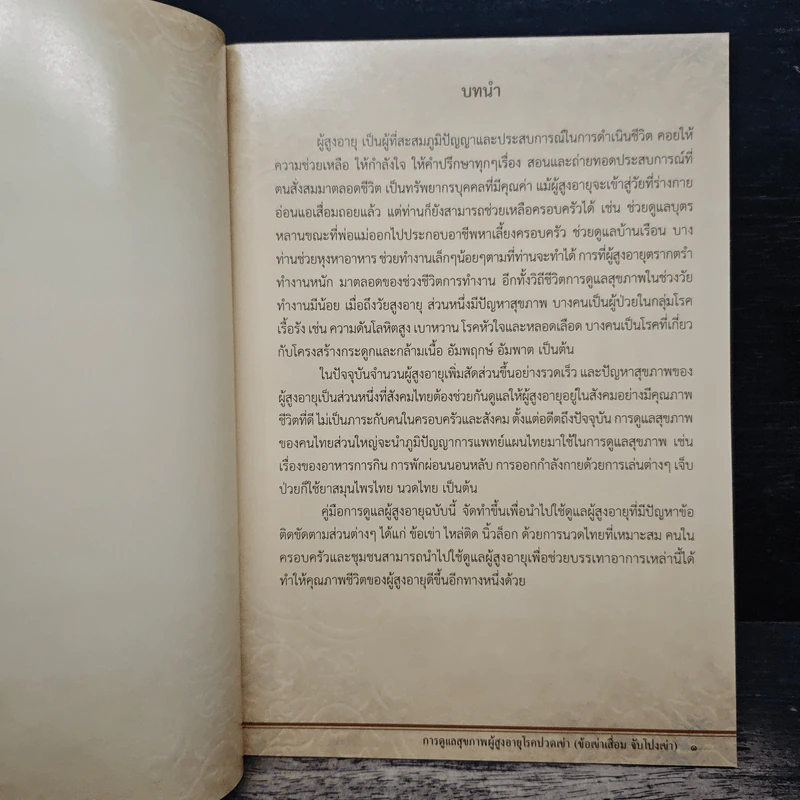 บทนำ
ผู้สูงอายุ เป็นผู้ที่สะสมภูมิปัญญาและประสบการณ์ในการดำเนินชีวิต คอยให้
ความช่วยเหลือ ให้กำลังใจ ให้คำปรึกษาทุกๆเรื่อง สอนและถ่ายทอดประสบการณ์ที่
ตนสั่งสมมาตลอดชีวิต เป็นทรัพยากรบุคคลที่มีคุณค่า แม้ผู้สูงอายุจะเข้าสู่วัยที่ร่างกาย
อ่อนแอเสื่อมถอยแล้ว แต่ท่านก็ยังสามารถช่วยเหลือครอบครัวได้ เช่น ช่วยดูแลบุตร
หลานขณะที่พ่อแม่ออกไปประกอบอาชีพหาเลี้ยงครอบครัว ช่วยดูแลบ้านเรือน บาง
ท่านช่วยหุงหาอาหาร ช่วยทำงานเล็กๆน้อยๆตามที่ท่านจะทำได้ การที่ผู้สูงอายุตรากตรำ
ทำงานหนัก มาตลอดของช่วงชีวิตการทำงาน อีกทั้งวิถีชีวิตการดูแลสุขภาพในช่วงวัย
ทำงานมีน้อย เมื่อถึงวัยสูงอายุ ส่วนหนึ่งมีปัญหาสุขภาพ บางคนเป็นผู้ป่วยในกลุ่มโรค
เรื้อรัง เช่น ความดันโลหิตสูง เบาหวาน โรคหัวใจและหลอดเลือด บางคนเป็นโรคที่เกี่ยว
กับโครงสร้างกระดูกและกล้ามเนื้อ อัมพฤกษ์ อัมพาต เป็นต้น
ในปัจจุบันจำนวนผู้สูงอายุเพิ่มสัดส่วนขึ้นอย่างรวดเร็ว และปัญหาสุขภาพของ
ผู้สูงอายุเป็นส่วนหนึ่งที่สังคมไทยต้องช่วยกันดูแลให้ผู้สูงอายุอยู่ในสังคมอย่างมีคุณภาพ
ชีวิตที่ดี ไม่เป็นภาระกับคนในครอบครัวและสังคม ตั้งแต่อดีตถึงปัจจุบัน การดูแลสุขภาพ
ของคนไทยส่วนใหญ่จะนำภูมิปัญญาการแพทย์แผนไทยมาใช้ในการดูแลสุขภาพ เช่น
เรื่องของอาหารการกิน การพักผ่อนนอนหลับ การออกกำลังกายด้วยการเล่นต่างๆ เจ็บ
ป่วยก็ใช้ยาสมุนไพรไทย นวดไทย เป็นต้น
คู่มือการดูแลผู้สูงอายุฉบับนี้ จัดทำขึ้นเพื่อนำไปใช้ดูแลผู้สูงอายุที่มีปัญหาข้อ
ติดขัดตามส่วนต่างๆ ได้แก่ ข้อเข่า ไหล่ติด นิ้วล็อก ด้วยการนวดไทยที่เหมาะสม คนใน
ครอบครัวและชุมชนสามารถนำไปใช้ดูแลผู้สูงอายุเพื่อช่วยบรรเทาอาการเหล่านี้ได้
ทำให้คุณภาพชีวิตของผู้สูงอายุดีขึ้นอีกทางหนึ่งด้วย
การดูแลสุขภาพผู้สูงอายุโรคปวดเข่า (ข้อเข่าเสื่อม จับโปงเข่า) ๑